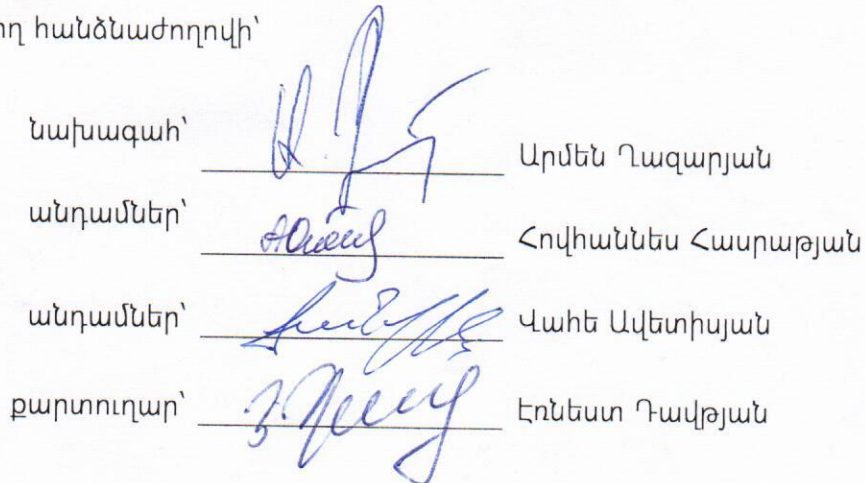 ող հանձնաժողովի՝
նախագահ՝ Արմեն Ղազարյան
անդամներ՝ Հովհաննես Հասրաթյան
անդամներ՝ Վահե Ավետիսյան
քարտուղար՝ Էռնեստ Դավթյան